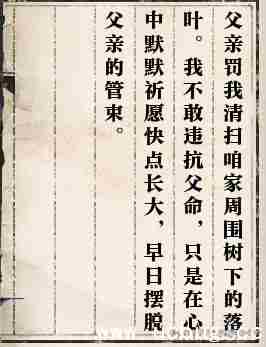 父亲罚我清扫咱家周围树下的落
叶。我不敢违抗父命，只是在心
中默默祈愿快点长大，早日摆脱
父亲的管束。